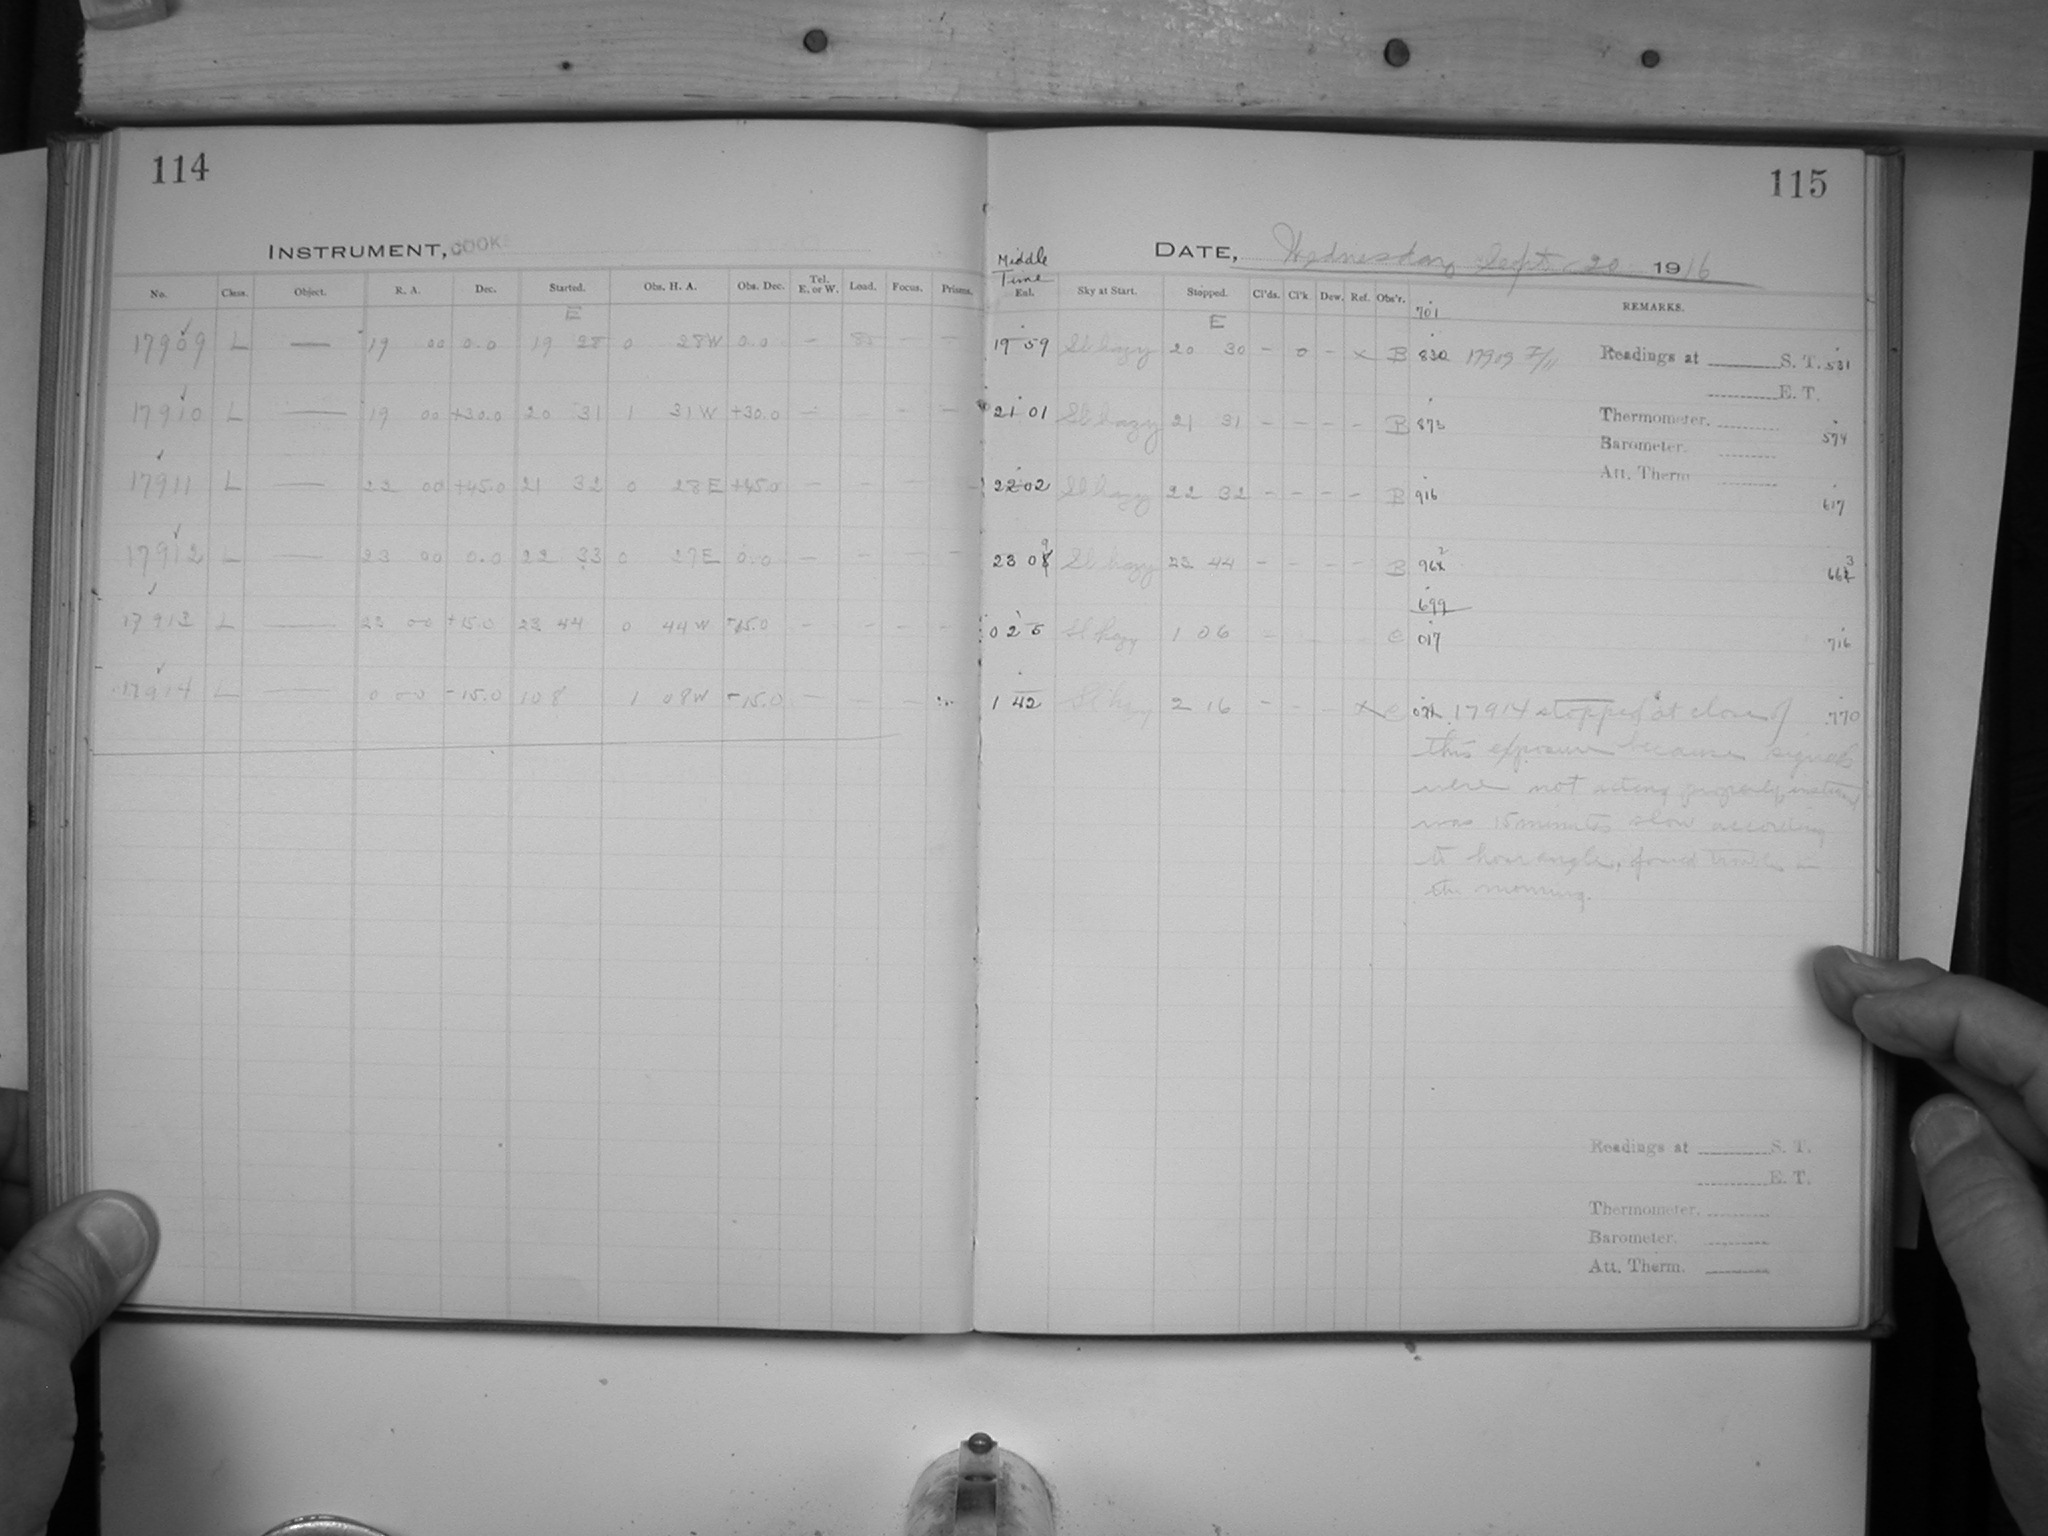 114
115
INSTRUMENT, COOKE
DATE, Wednesday Sept. 20 1916
No. Class. Object. R. A. Dec. Started. Obs. H. A. Obs. Dec. Tel. E. or W. Load. Focus. Prisms.
Middle Time
Enl. Sky at Start. Stopped. Cl'ds. Cl'k. Dew. Ref. Obs'r. REMARKS.
E
E
701
17909 L — 19 00 0.0 19 28 0 28W 0.0 — — — 19 59 Sl hazy 20 30 - 0 - x B 830 17909 Readings at S. T. 531
E. T.
17910 L — 19 00 +30.0 20 31 1 31W +30.0 — — — 21 01 Sl hazy 21 31 - - - - B 873 Thermometer. 574
Barometer.
Att. Therm
17911 L — 22 00 +45.0 21 32 0 28E +45.0 — — — 22 02 Sl hazy 22 32 - - - - B 916 617
17912 L — 23 00 0.0 22 33 0 27E 0.0 — — — 23 09 Sl hazy 23 44 - - - - B 962 663
699
17913 L — 23 00 +15.0 23 44 0 44W +15.0 — — — 0 25 Sl hazy 1 06 - - - - C 017 716
17914 L — 0 00 -15.0 1 08 1 08W -15.0 — — — 1 42 Sl hazy 2 16 - - - x C 17914 stopped at close of 770
this exposure because signals
were not acting properly,
was 15 minutes slow according
to hour angle, found trouble in
the morning.
Readings at S. T.
E. T.
Thermometer.
Barometer.
Att. Therm.